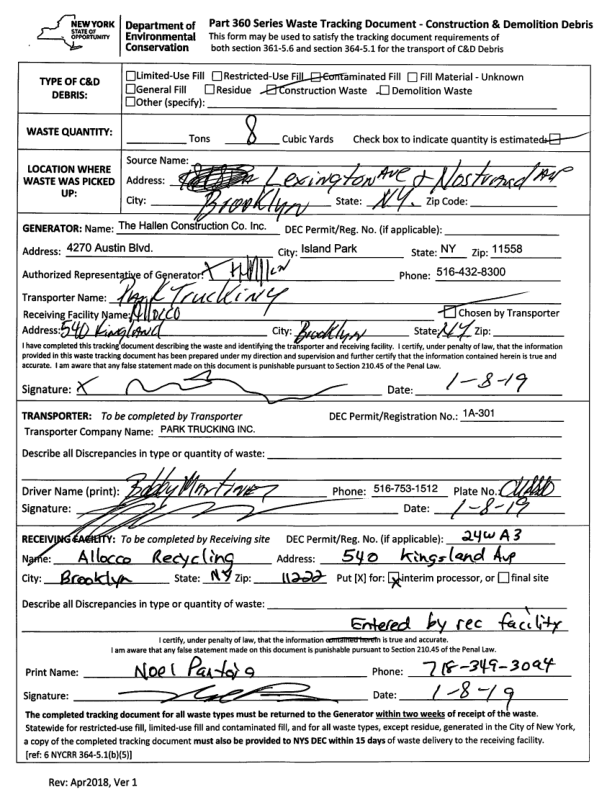 NEW YORK
STATE OF
OPPORTUNITY
Department of
Environmental
Conservation
Part 360 Series Waste Tracking Document - Construction & Demolition Debris
This form may be used to satisfy the tracking document requirements of
both section 361-5.6 and section 364-5.1 for the transport of C&D Debris
TYPE OF C&D
DEBRIS:
Limited-Use Fill Restricted-Use Fill Contaminated Fill Fill Material - Unknown
General Fill Residue Construction Waste Demolition Waste
Other (specify):
WASTE QUANTITY: Tons 8 Cubic Yards Check box to indicate quantity is estimated:
LOCATION WHERE
WASTE WAS PICKED
UP:
Source Name:
Address: Lexington Ave & Nostrand Ave
City: Brooklyn State: NY. Zip Code:
GENERATOR: Name: The Hallen Construction Co. Inc. DEC Permit/Reg. No. (if applicable):
Address: 4270 Austin Blvd. City: Island Park State: NY Zip: 11558
Authorized Representative of Generator: X Phone: 516-432-8300
Transporter Name: Park Trucking
Receiving Facility Name: Allocco Chosen by Transporter
Address: 540 Kingland City: Brooklyn State: NY Zip:
I have completed this tracking document describing the waste and identifying the transporter and receiving facility. I certify, under penalty of law, that the information
provided in this waste tracking document has been prepared under my direction and supervision and further certify that the information contained herein is true and
accurate. I am aware that any false statement made on this document is punishable pursuant to Section 210.45 of the Penal Law.
Signature: X Date: 1-8-19
TRANSPORTER: To be completed by Transporter DEC Permit/Registration No.: 1A-301
Transporter Company Name: PARK TRUCKING INC.
Describe all Discrepancies in type or quantity of waste:
Driver Name (print): Bobby Martinez Phone: 516-753-1512 Plate No.
Signature: Date: 1-8-19
RECEIVING FACILITY: To be completed by Receiving site DEC Permit/Reg. No. (if applicable): 24W A3
Name: Allocco Recycling Address: 540 Kingsland Ave
City: Brooklyn State: NY Zip: 11222 Put [X] for: X interim processor, or final site
Describe all Discrepancies in type or quantity of waste:
Entered by rec facility
I certify, under penalty of law, that the information contained herein is true and accurate.
I am aware that any false statement made on this document is punishable pursuant to Section 210.45 of the Penal Law.
Print Name: Noel Phone: 718-349-3094
Signature: Date: 1-8-19
The completed tracking document for all waste types must be returned to the Generator within two weeks of receipt of the waste.
Statewide for restricted-use fill, limited-use fill and contaminated fill, and for all waste types, except residue, generated in the City of New York,
a copy of the completed tracking document must also be provided to NYS DEC within 15 days of waste delivery to the receiving facility.
[ref: 6 NYCRR 364-5.1(b)(5)]
Rev: Apr2018, Ver 1